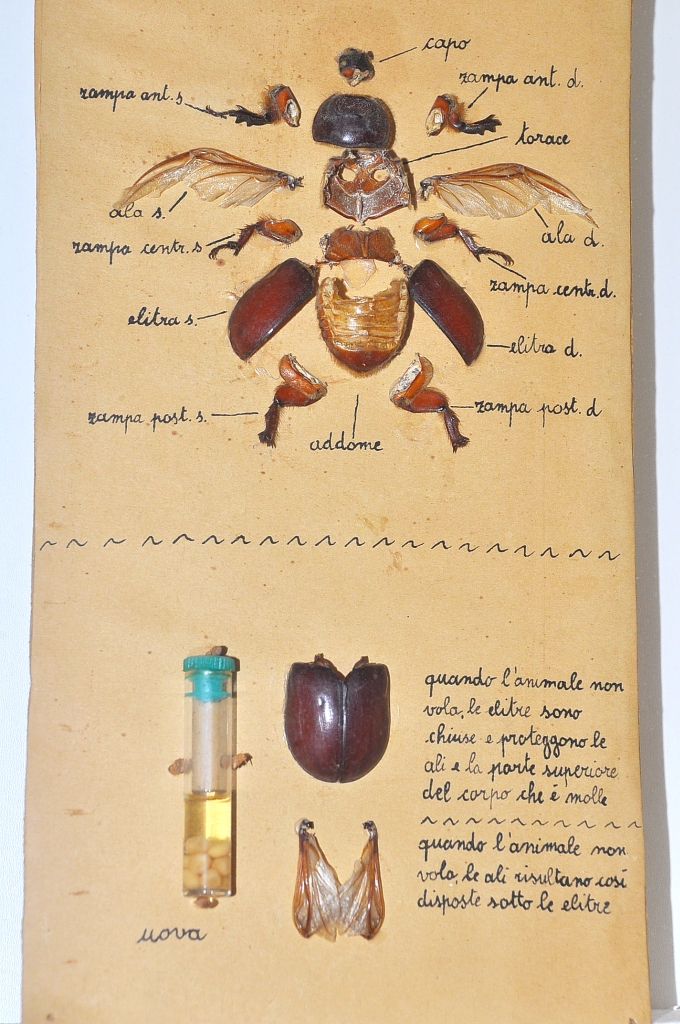 capo
zampa ant. s
zampa ant. d.
torace
ala s.
ala d.
zampa centr. s
zampa centr. d.
elitra s.
elitra d.
zampa post. s.
zampa post. d
addome
quando l'animale non
vola, le elitre sono
chiuse e proteggono le
ali e la parte superiore
del corpo che é molle
quando l'animale non
vola, le ali risultano così
disposte sotto le elitre
uova